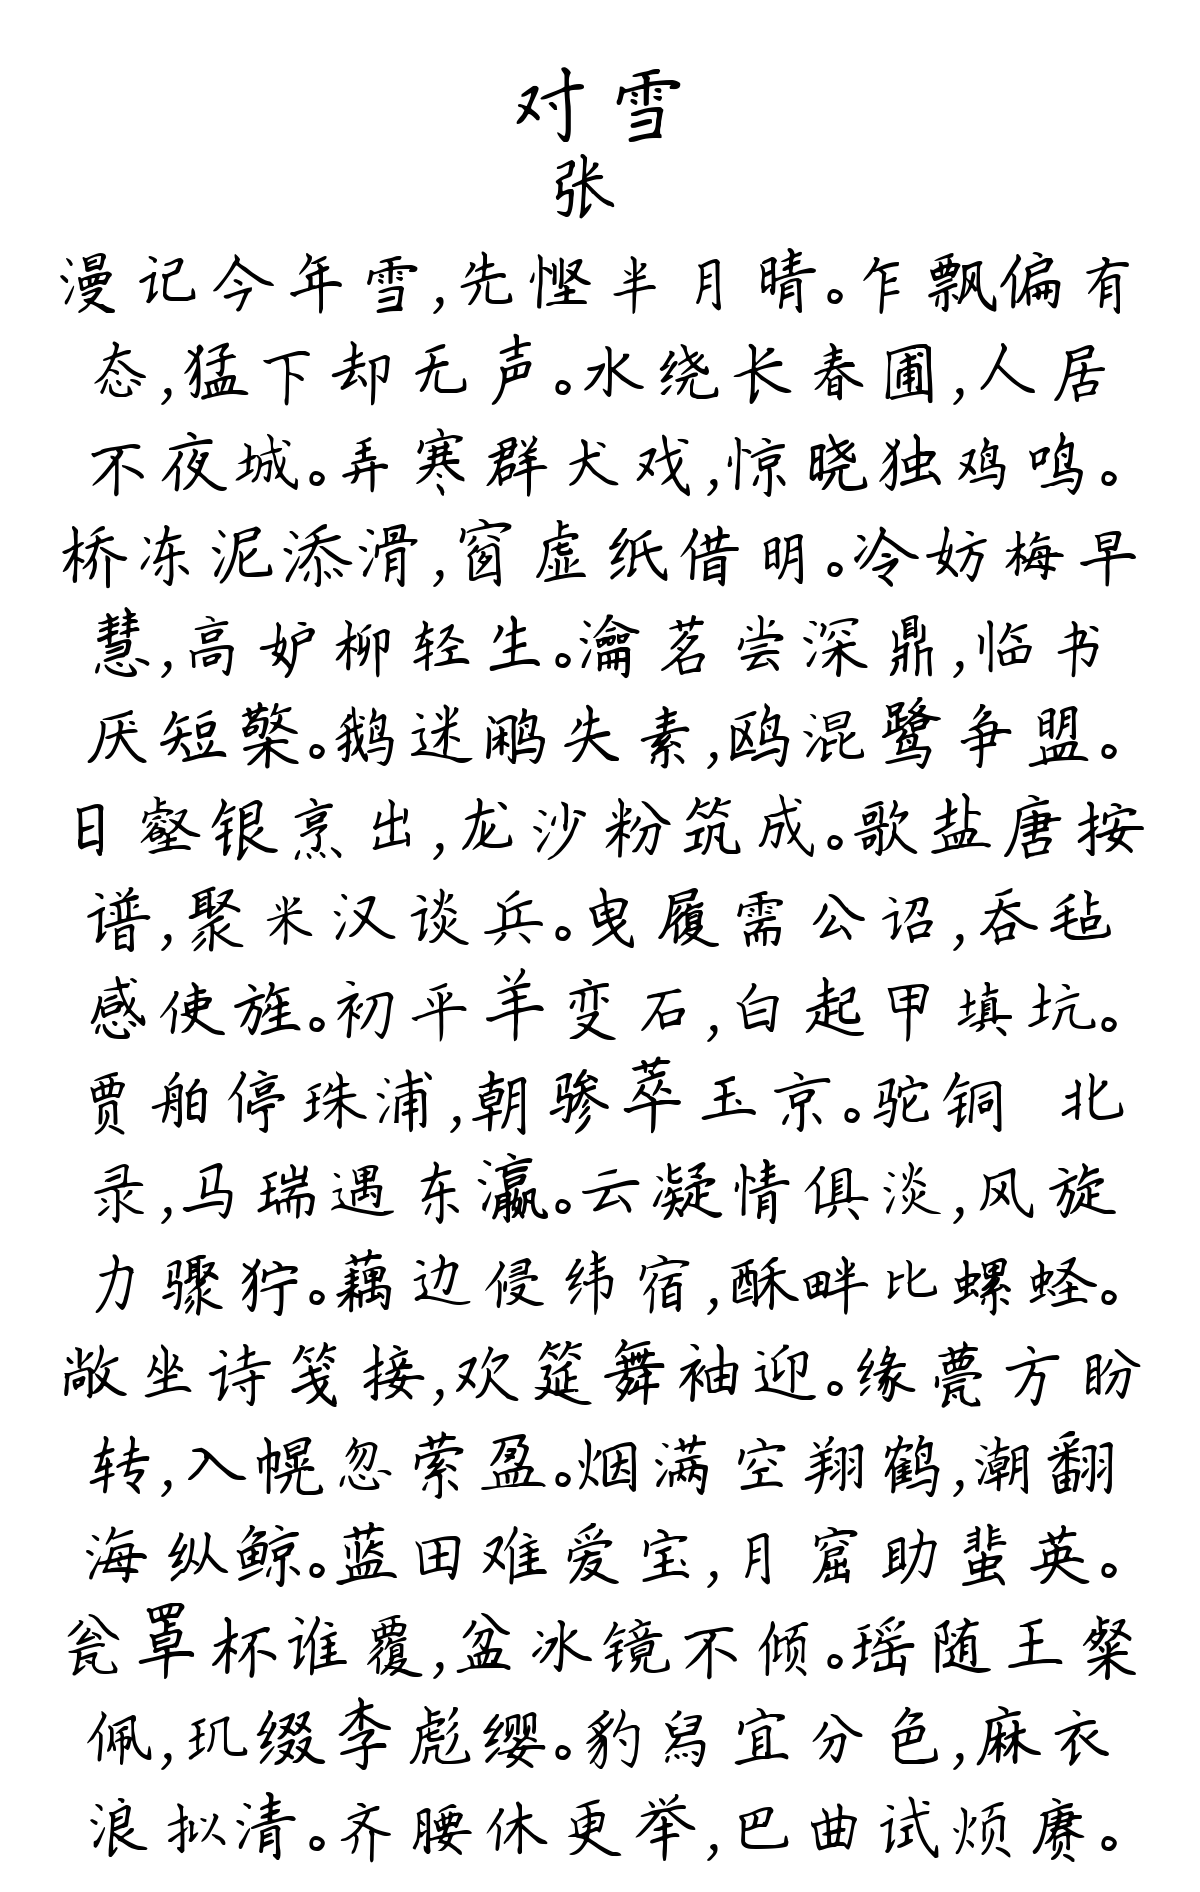 对雪
张
漫记今年雪,先悭半月晴。乍飘偏有
态,猛下却无声。水绕长春圃,人居
不夜城。弄寒群犬戏,惊晓独鸡鸣。
桥冻泥添滑,窗虚纸借明。冷妨梅早
慧,高妒柳轻生。瀹茗尝深鼎,临书
厌短檠。鹅迷鹇失素,鸥混鹭争盟。
日壑银烹出,龙沙粉筑成。歌盐唐按
谱,聚米汉谈兵。曳履需公诏,吞毡
感使旌。初平羊变石,白起甲填坑。
贾舶停珠浦,朝骖萃玉京。驼铜 北
录,马瑞遇东瀛。云凝情俱淡,风旋
力骤狞。藕边侵纬宿,酥畔比螺蛏。
敞坐诗笺接,欢筵舞袖迎。缘甍方盼
转,入幌忽萦盈。烟满空翔鹤,潮翻
海纵鲸。蓝田难爱宝,月窟助蜚英。
瓮罩杯谁覆,盆冰镜不倾。瑶随王粲
佩,玑缀李彪缨。豹舄宜分色,麻衣
浪拟清。齐腰休更举,巴曲试烦赓。